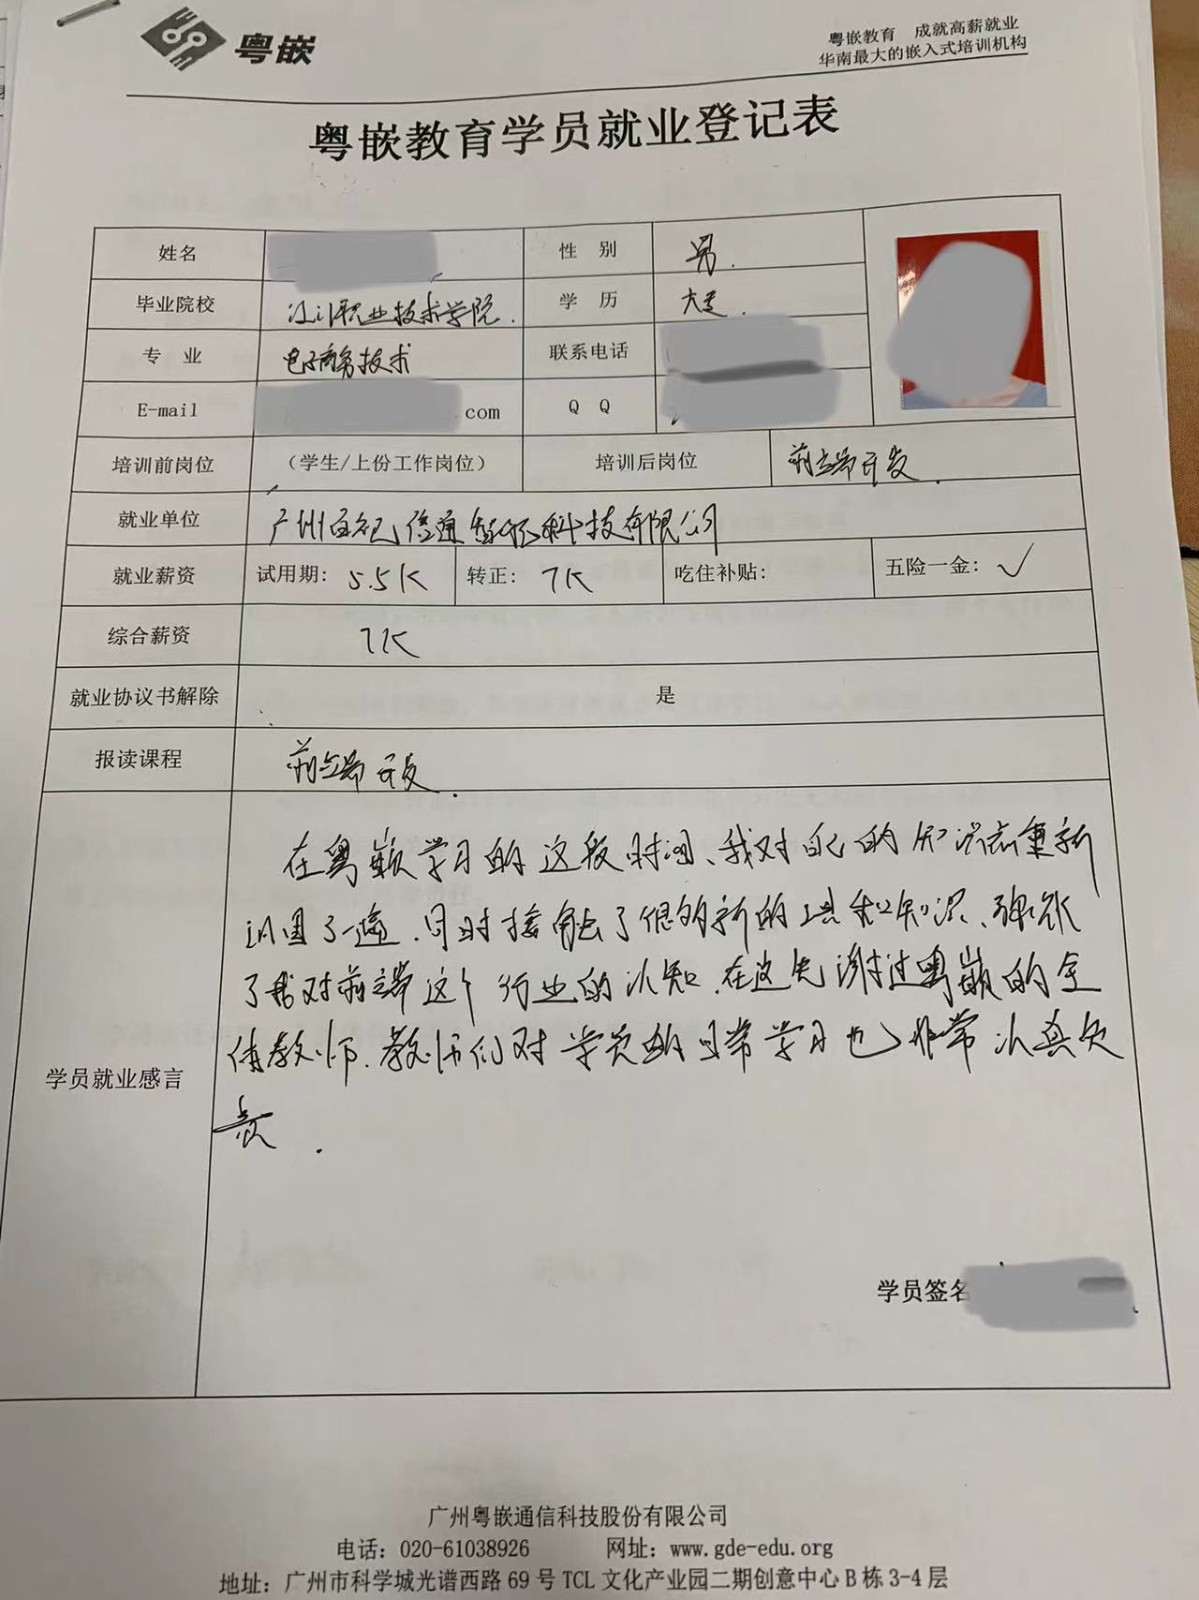 粤嵌
粤嵌教育 成就高薪就业
华南最大的嵌入式培训机构
粤嵌教育学员就业登记表
姓名 性 别 男.
毕业院校 江门职业技术学院. 学 历 大专.
专 业 电子商务技术 联系电话
E-mail com Q Q
培训前岗位 (学生/上份工作岗位) 培训后岗位 前端开发.
就业单位 广州 信通 科技有限公司
就业薪资 试用期: 5.5K 转正: 7K 吃住补贴: 五险一金: ✓
综合薪资 7K
就业协议书解除 是
报读课程 前端开发.
在粤嵌学习的这段时间、我对自己的知识点重新
巩固了一遍.同时接触了很多新的 知识、
了我对前端这个行业的认知.在这先谢过粤嵌的全
体教师.教师们对学员的日常学习也非常认真负
责.
学员就业感言
学员签名
广州粤嵌通信科技股份有限公司
电话: 020-61038926 网址: www.gde-edu.org
地址: 广州市科学城光谱西路 69 号 TCL 文化产业园二期创意中心 B 栋 3-4 层